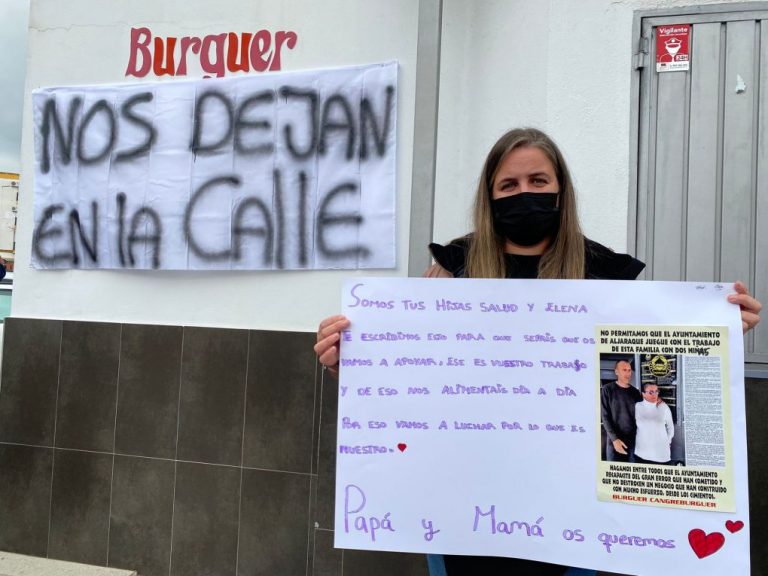 Burguer
NOS DEJAN
EN la Calle
Vigilante
24H
SOMOS TUS HIJAS SALUD Y ELENA
TE ESCRIBIMOS ESTO PARA QUE SEPÁIS QUE OS
VAMOS A APOYAR. ESE ES VUESTRO TRABAJO
Y DE ESO NOS ALIMENTAIS DÍA A DÍA
POR ESO VAMOS A LUCHAR POR LO QUE ES
NUESTRO.
Papá y Mamá os queremos
NO PERMITAMOS QUE EL AYUNTAMIENTO
DE ALJARAQUE JUEGUE CON EL TRABAJO
DE ESTA FAMILIA CON DOS NIÑAS
HAGAMOS ENTRE TODOS QUE EL AYUNTAMIENTO
RECAPASITE DEL GRAN ERROR QUE HAN COMETIDO Y
QUE NO DESTROCEN UN NEGOCIO QUE HAN CONSTRUIDO
CON MUCHO ESFUERZO. DESDE LOS CIMIENTOS.
BURGUER CANGREBURGUER